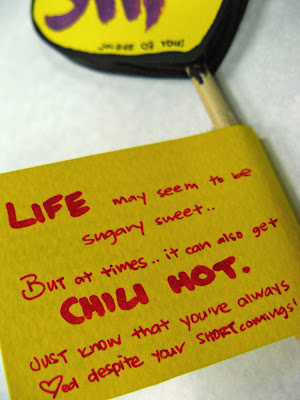 OF YOU!
LIFE may seem to be
sugary sweet..
But at times.. it can also get
CHILI HOT.
JUST KNOW that you've always
♡ed despite your SHORTcomings!